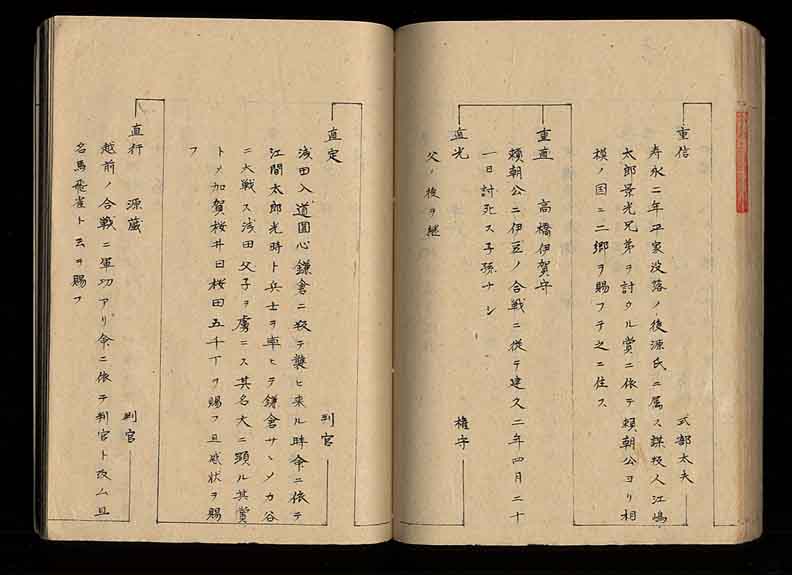 重信　式部太夫
寿永二年平家没落ノ後源氏ニ属ス謀殺人江嶋
太郎景光兄弟ヲ討ウル賞ニ依テ頼朝公ヨリ相
模ノ国ニ二郷ヲ賜フテ之ニ住ス
重直　高橋伊賀守
頼朝公ニ伊豆ノ合戦ニ従テ建久二年四月二十
一日討死ス子孫ナシ
直光　権守
父ノ後ヲ継
直定　判官
浅田入道圓心鎌倉ニ殺テ襲ヒ来ル時命ニ依テ
江間太郎光時ト兵士ヲ率ヒテ鎌倉サヽメカ谷
ニ大戦ス浅田父子ヲ虜ニス其名大ニ顕ル其賞
トメ加賀桜井日桜田五千丁ヲ賜フ且感状ヲ賜
フ
直行　源蔵　判官
越前ノ合戦ニ軍功アリ命ニ依テ判官ト改ム且
名馬飛雀ト云ヲ賜フ